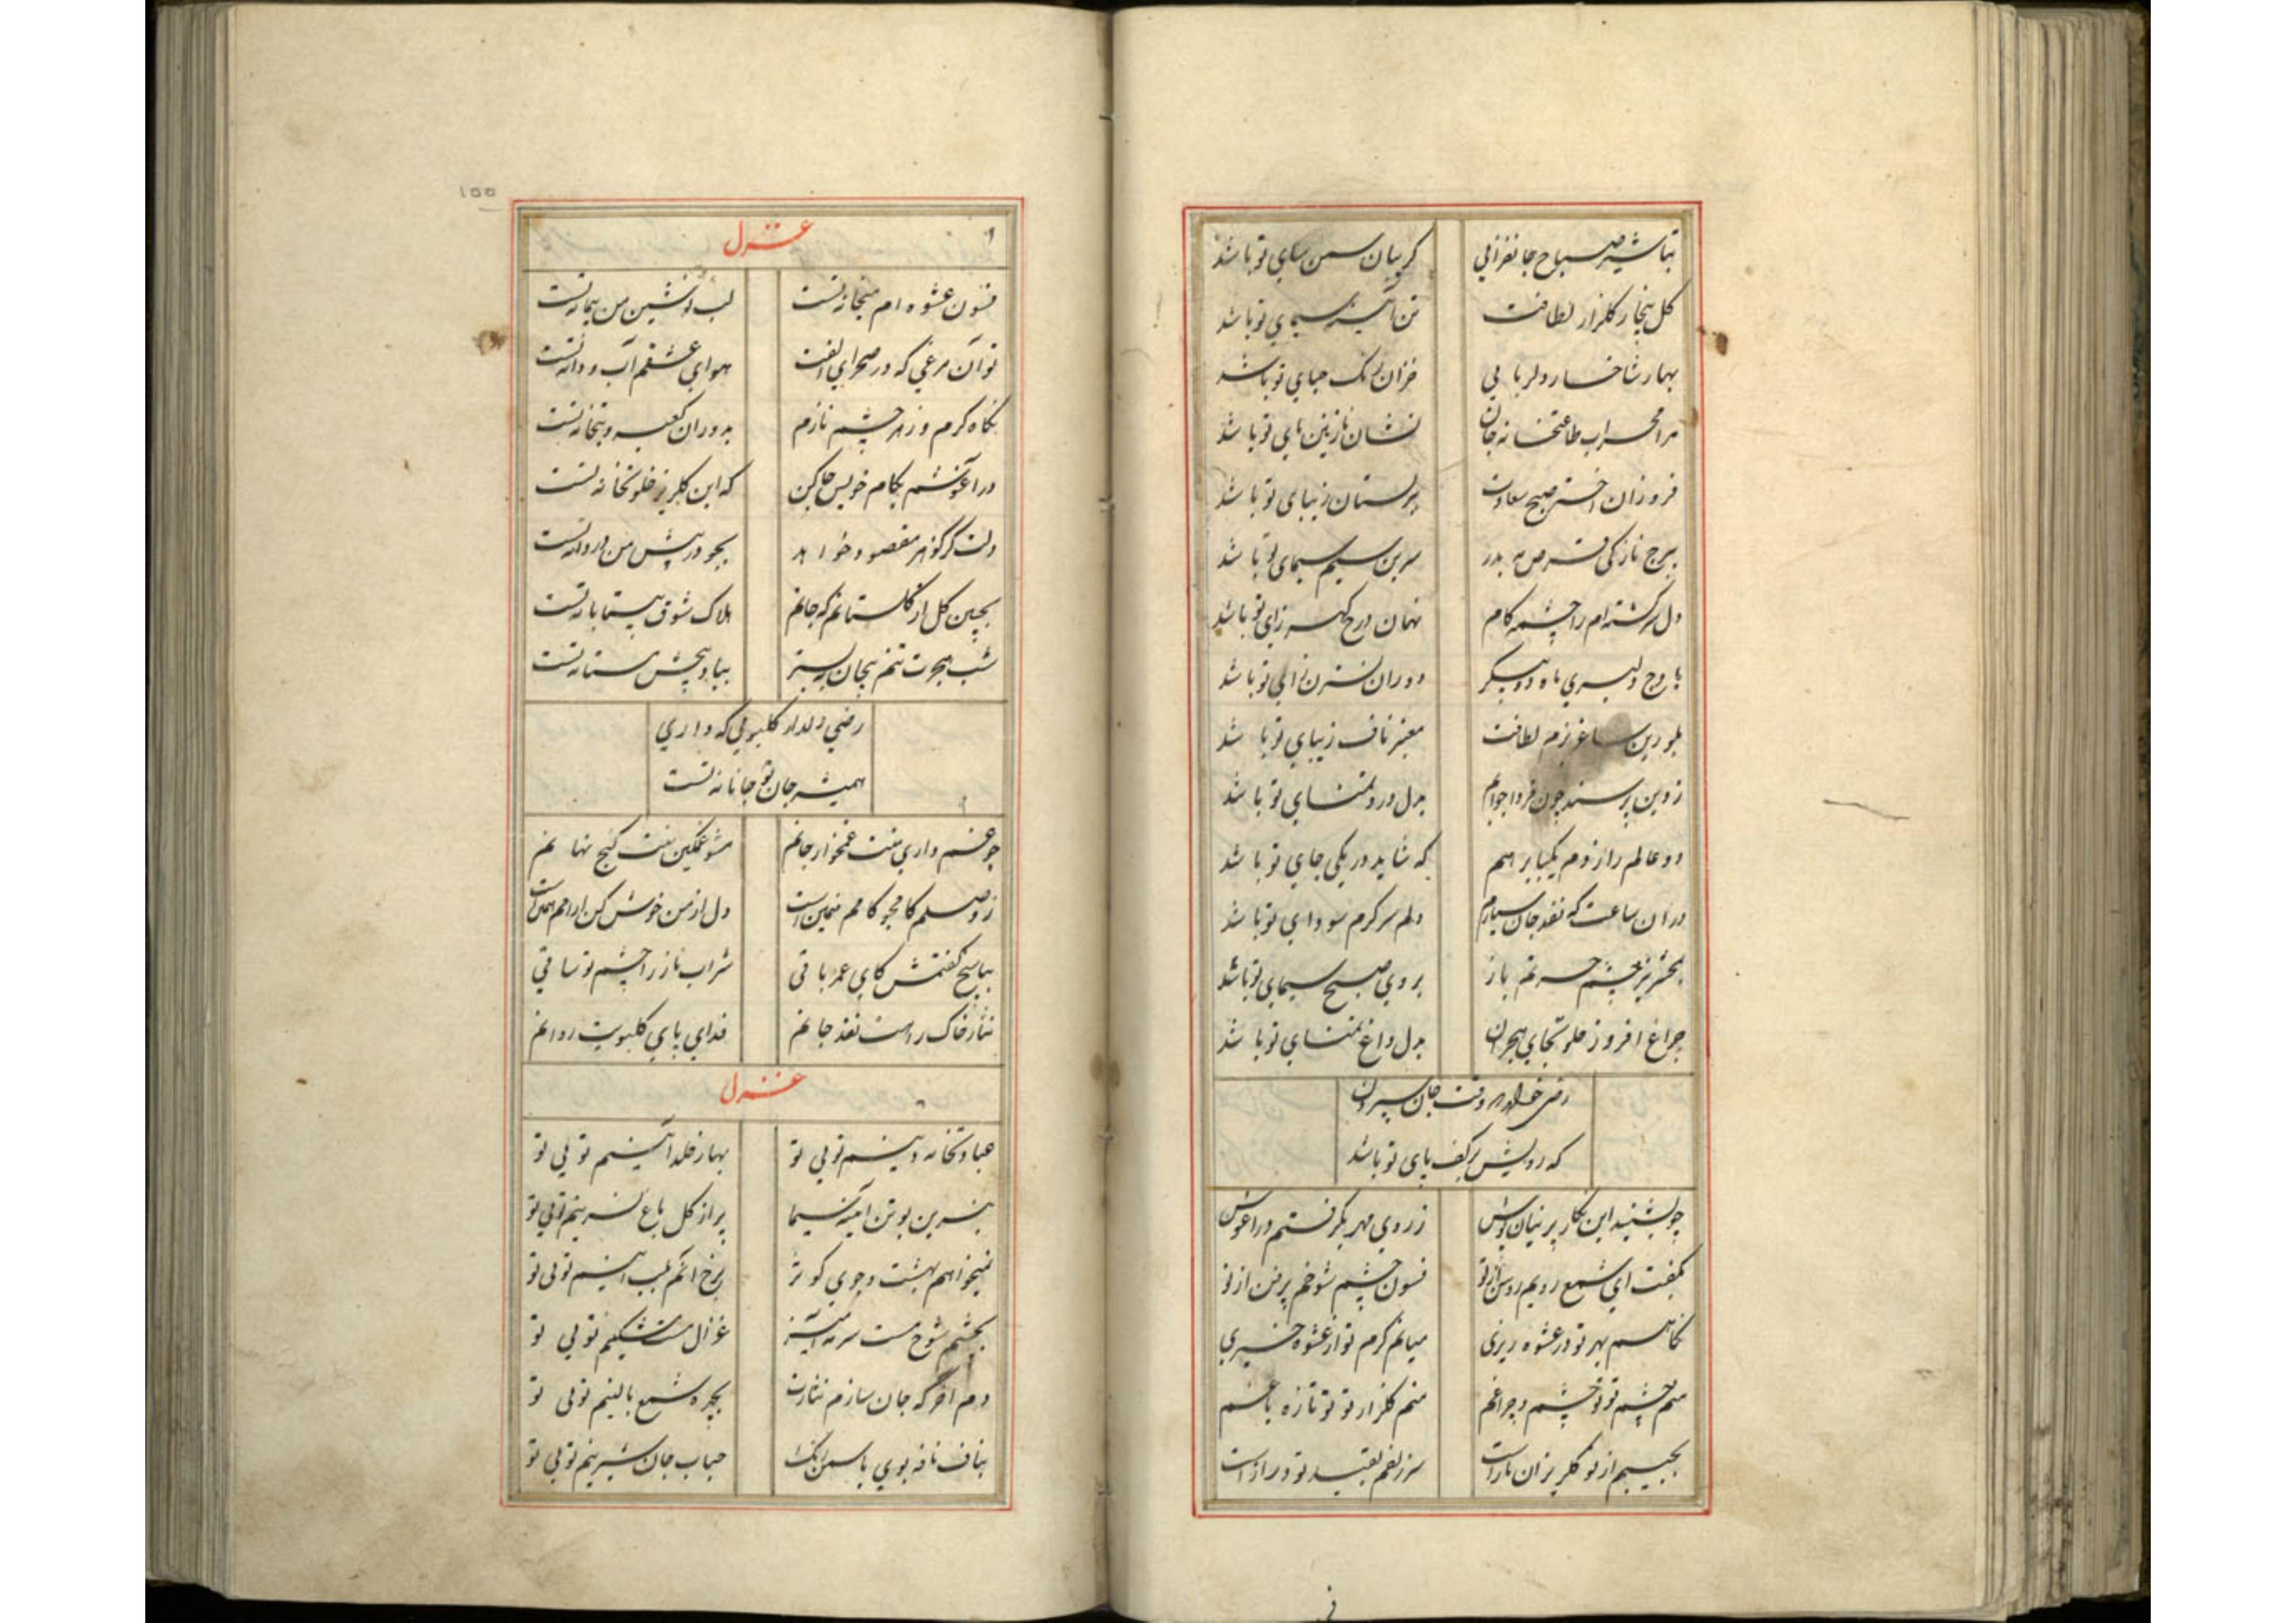 تباشیر صباح جانفزائی کریبان سمن سای تو باشد
کل بیخار کلزار لطافت تن آئینه سیمای تو باشد
بهار شاخسار دلربایی خزان رنک حنای تو باشد
مرا محراب طاعتخانه جان نشان نازنین پای تو باشد
فروزان اختر صبح سعادت پرستان زیبای تو باشد
ببرج نازکی قرص مه بدر سرین سیم سیمای تو باشد
دل سرکشته‌ام را چشمه کام نهان درج کهر زای تو باشد
باوج دلبری ماه دو پیکر دو ران نسترن زای تو باشد
بلورین ساغر بزم لطافت معنبر ناف زیبای تو باشد
ز دین پرسند چون فردا جوابم بدل درد تمنای تو باشد
دو عالم را زدم یکبا بر هم که شاید در یکی جای تو باشد
در ان ساعت که نقد جان سپارم دلم سرکرم سودای تو باشد
بمحشر نیز چشم حسرتم باز بروی صبح سیمای تو باشد
چراغ افروز خلوتجای هجران بدل داغ تمنای تو باشد
رضی خواهد وقت جان سپردن
که رویش بر کف پای تو باشد
چو بشنید این نکار پرنیان پوش ز روی مهر بکرفتم در اغوش
بکفت ای شمع رویم روشن از تو فسون چشم شوخم پر فن از تو
نکاهم بهر تو در عشوه ریزی میانم کرم تو از عشوه خیزی
منم چشم تو تو چشم و چراغم منم کلزار تو تو تازه باغم
بجیبم از تو کلریزان ناز است سر زلفم بقید تو دراز است
۱۵۵
غزل
فسون عشوه ام میخانه تست لب نوشین من پیمانه تست
تو آن مرغی که در صحرای الفت هوای عشقم آب و دانه تست
نکاه کرم وز هر چشم نازم بدوران کعبه و بتخانه تست
در آغوشم بکام خویش جا کن که این کلریز خلوتخانه تست
دلت کر کوهر مقصود خواهد بجو در پیش من دردانه تست
بچین کل از کلستانم که جانم هلاک شوق بیتابانه تست
شب هجرت تنم بیجان به بستر بیاد چشم مستانه تست
رضی دلدار کلبویی که داری
همیشه جان تو جانانه تست
چو غم داری منت غمخوار جانم مشو غمکین منت کنج نهانم
ز وصلم کام جو کامم همین است دل از من خوش کن ارامم همین است
بپاسخ کفتمش کای عمر باقی شراب ناز را چشم تو ساقی
نثار خاک راهت نقد جانم فدای پای کلبویت روانم
غزل
عبادتخانه دینم تویی تو بهار خلد آئینم تویی تو
بنسرین بو تن آئینه سیما پر از کل باغ نسرینم تویی تو
نمیخواهم بهشت و جوی کوثر
بچشم شوخ مست سرمه آمیز غزال مست مشکینم تویی تو
دم آخر که جان سازم نثارت بچهره شمع بالینم تویی تو
بناف نافه بوی یاسمن رنک حباب جان شیرینم تویی تو